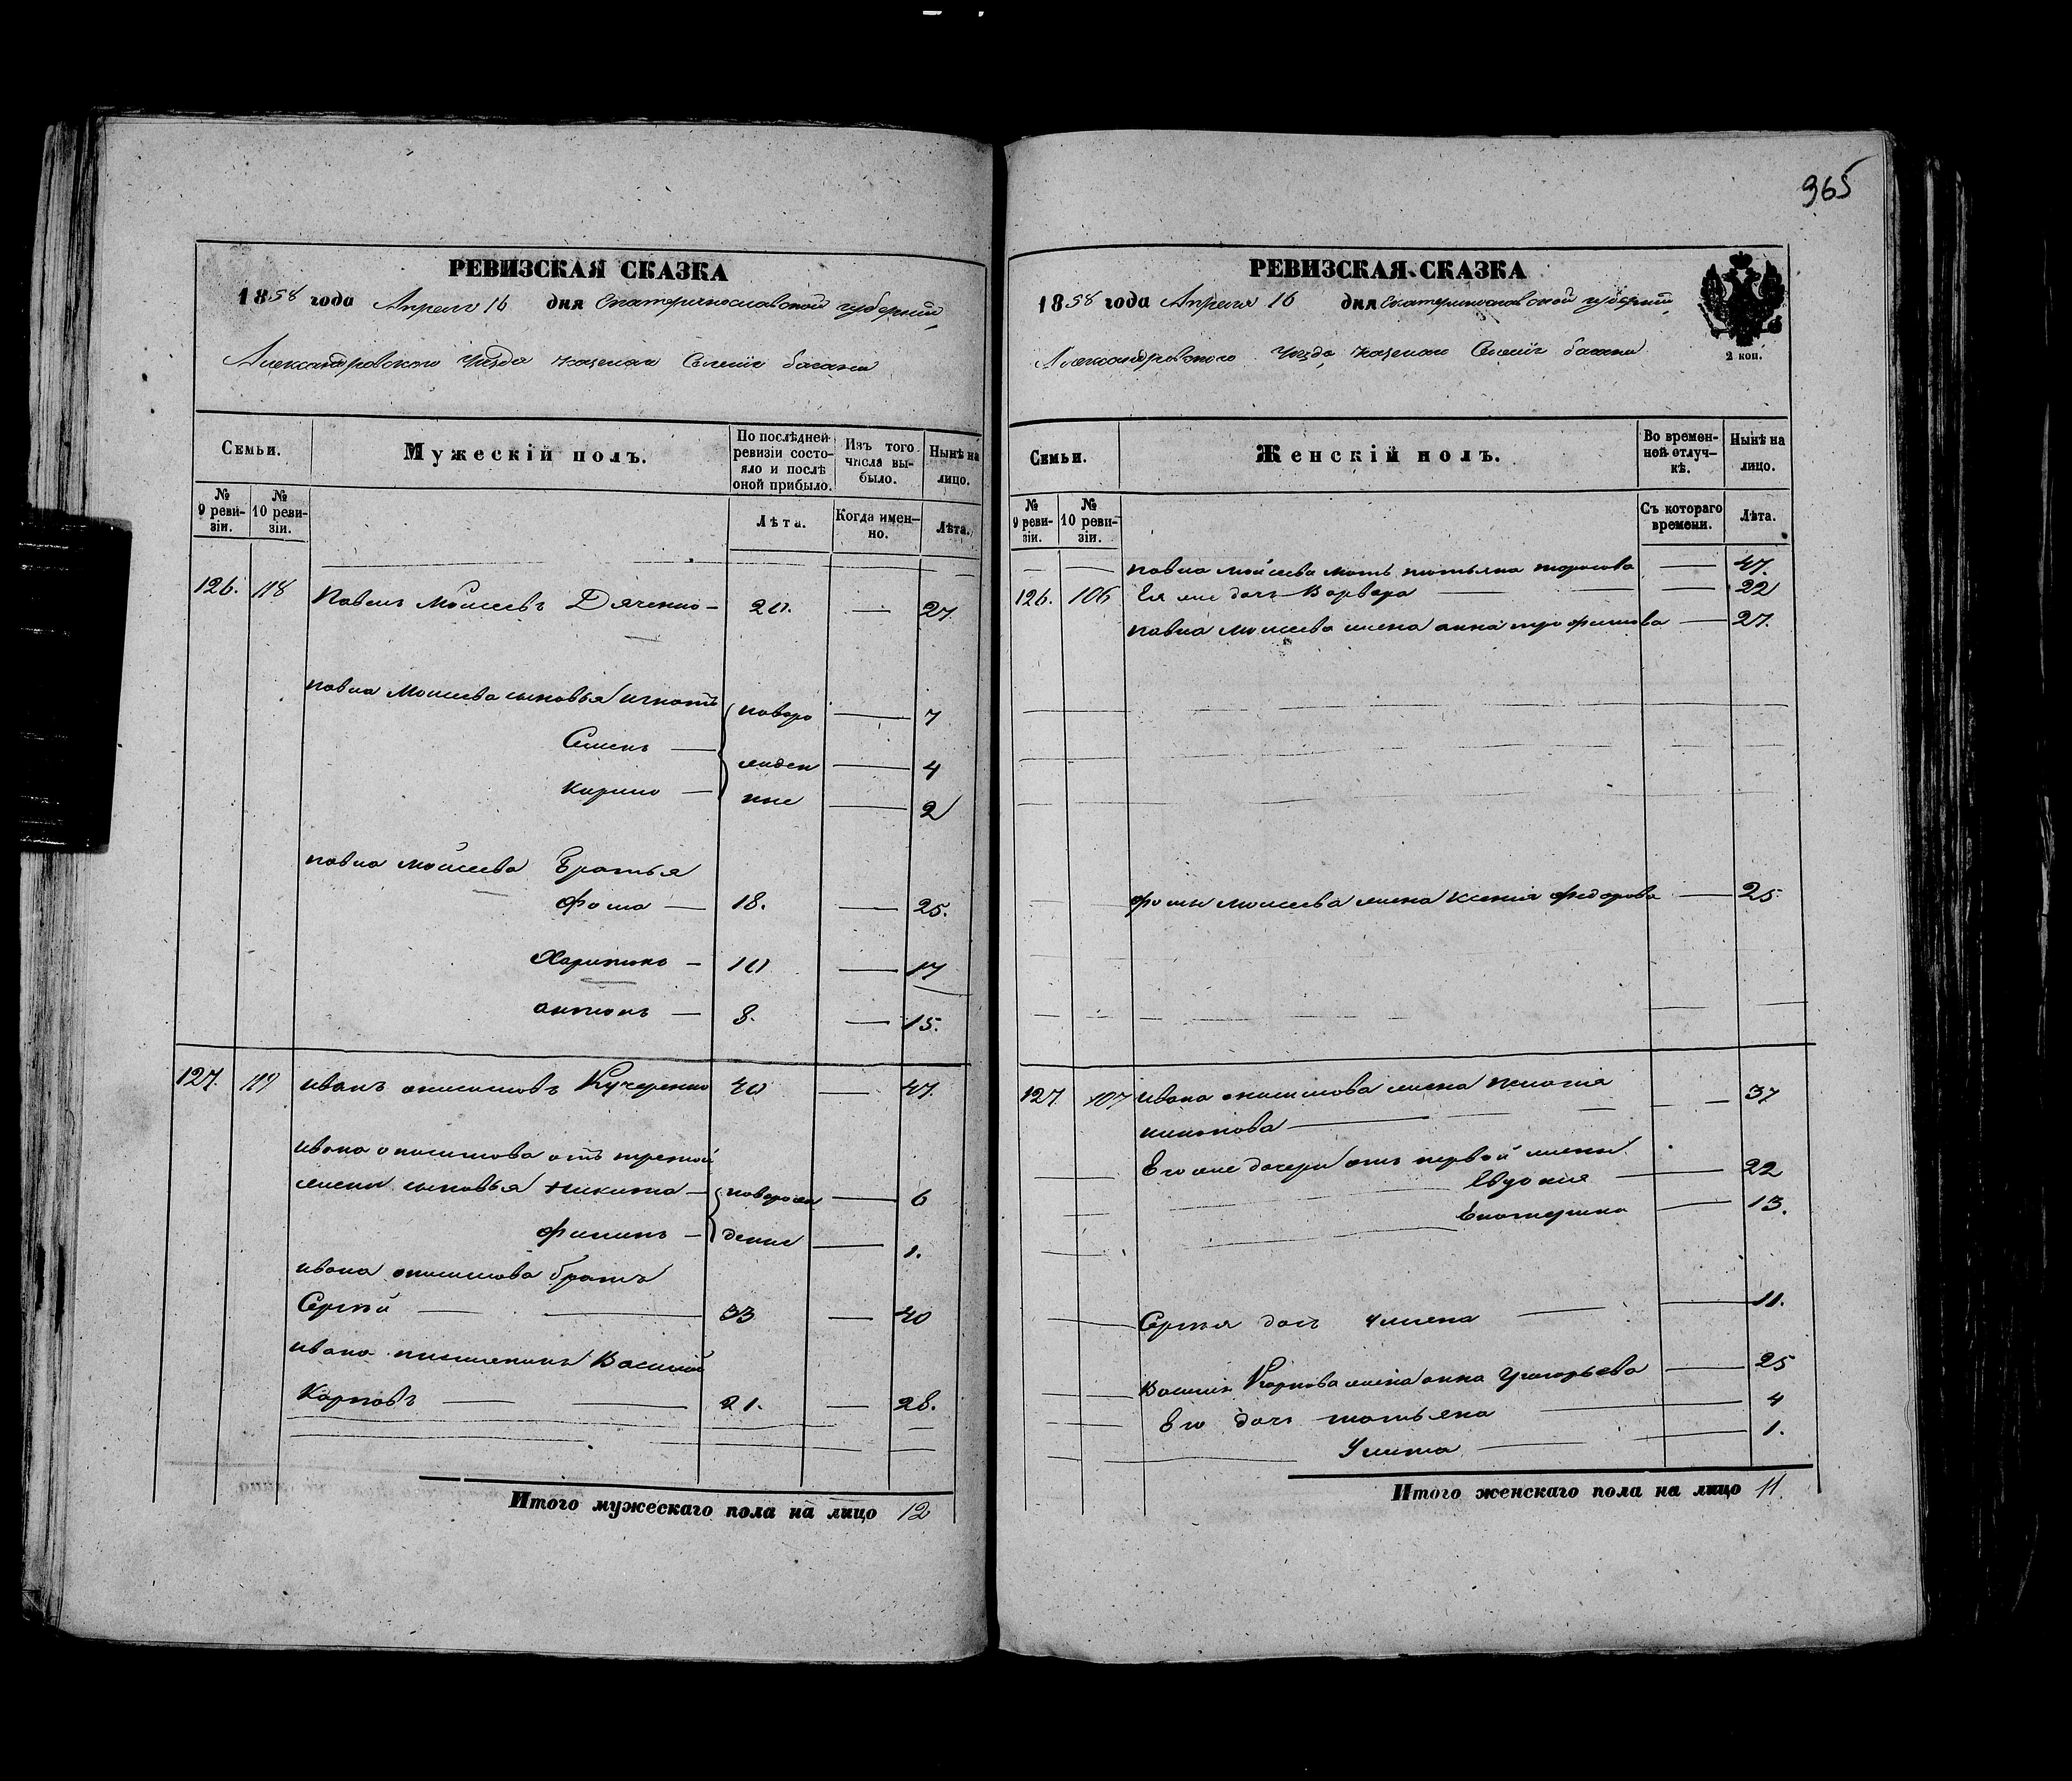 965
РЕВИЗСКАЯ СКАЗКА
1858 года Апреля 16 дня Екатеринославской губернии,
Александровского Уезда казенаго Селения
Семьи.
Мужескій полъ.
По послѣдней ревизіи состояло и послѣ оной прибыло.
Изъ того числа выбыло.
Нынѣ на лицо.
№ 9 ревизіи.
№ 10 ревизіи.
Лѣта.
Когда именно.
Лѣта.
126. 118 Павелъ Моисеевъ Дяченко — 20. — 27.
павла Моисеева сыновья игнатъ — 7
Семенъ — 4
новорожденные
2
павла моисеева Братья
Фома — 18. — 25.
Харитонъ — 10 — 17
антонъ — 8. — 15.
127. 119 иванъ анисимовъ Кучеренко 40 — 47.
ивана онисимова отъ третой
жены сыновья никита — новорожденные — 6
филипъ — 1.
ивана онисимова братъ
Сергей — 33 — 40
ивана племеникъ Василий
Карповъ — 21. — 28.
Итого мужескаго пола на лицо 12
РЕВИЗСКАЯ СКАЗКА
1858 года Апреля 16 дня Екатеринославской губернии,
Александровского Уезда казенаго Селения
2 коп.
Семьи.
Женскій полъ.
Во временной отлучкѣ.
Нынѣ на лицо.
№ 9 ревизіи.
№ 10 ревизіи.
Съ котораго времени.
Лѣта.
павла моисеева мать татьяна тарасова — 47.
126. 106 Ея же дочь Варвара — 22
павла моисеева жена анна трофимова — 27.
фомы моисеева жена ксения федорова — 25
127 107 ивана онисимова жена
37
Его же дочери отъ первой жены
Евдокия — 22
Екатерина — 13.
Сергея дочь — 11.
Василия Карпова жена анна Григорьева — 25
Его дочь татьяна — 4
Улита — 1.
Итого женскаго пола на лицо 11.